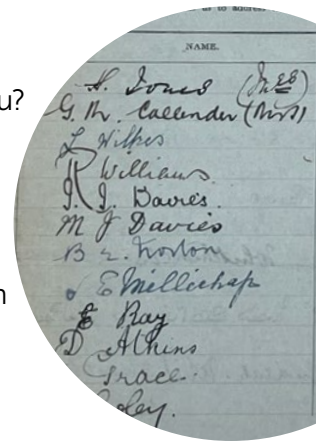 us to address
NAME.
u?
H. Jones (Mrs)
G. M. Callender (Mrs)
L Wilkes
R Williams.
I. I. Davies.
M J Davies
B E. Norton
E Millichap
n
E Ray
D Atkins
Grace
oley.